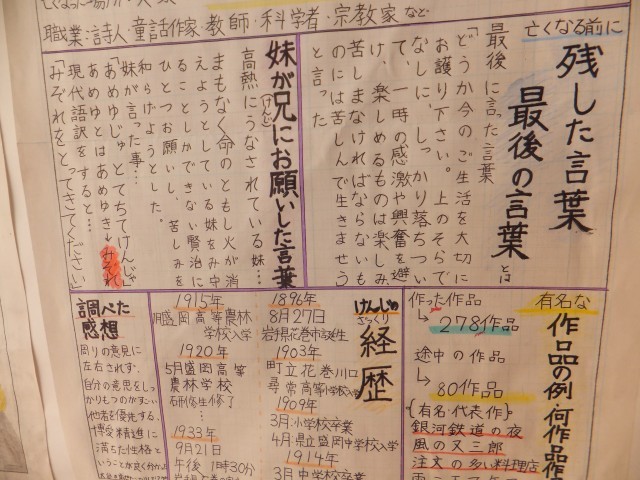 職業:詩人・童話作家・教師・科学者・宗教家など
亡くなる前に
残した言葉
最後の言葉とは
最後に言った言葉
「どうか今のご生活を大切に
お護り下さい。上のそらで
なしに、しっかり落ちつい
て、一時の感激や興奮を避
け、楽しめるものは楽しみ
苦しまなければならないも
のには苦しんで生きませう
と言った
妹が兄(けんじ)にお願いした言葉
高熱にうなされている妹…
まもなく命のともし火が消
えようとしている妹をみ守
ることしかできない賢治に
ひとつお願いし、苦しみを
和らげようとした。
妹が言った事…
「あめゆじゅとてちてけんじゃ
あめゆとはあめゆき→みぞれ
現代語訳をすると…
「みぞれをとってきてください」
有名な
作品の例・何作品作
作った作品
↳278作品
途中の作品
↳80作品
{有名・代表作}
銀河鉄道の夜
風の又三郎
注文の多い料理店
けんじの
ざっくり
経歴
1896年
8月27日
岩手県花巻市誕生
1903年
町立花巻川口
尋常高等小学校入学
1909年
3月:小学校卒業
4月:県立盛岡中学校入学
1914年
3月中学校卒業
1915年
盛岡高等農林
学校入学
1920年
5月盛岡高等
農林学校
研究生修了
⋮
1933年
9月21日
午後1時30分
調べた
感想
周りの意見に
左右されず、
自分の意思をしっ
かりもつのがすごい
他者を優先する、
精進に
満ちた性格と
いうことが良く分かっ